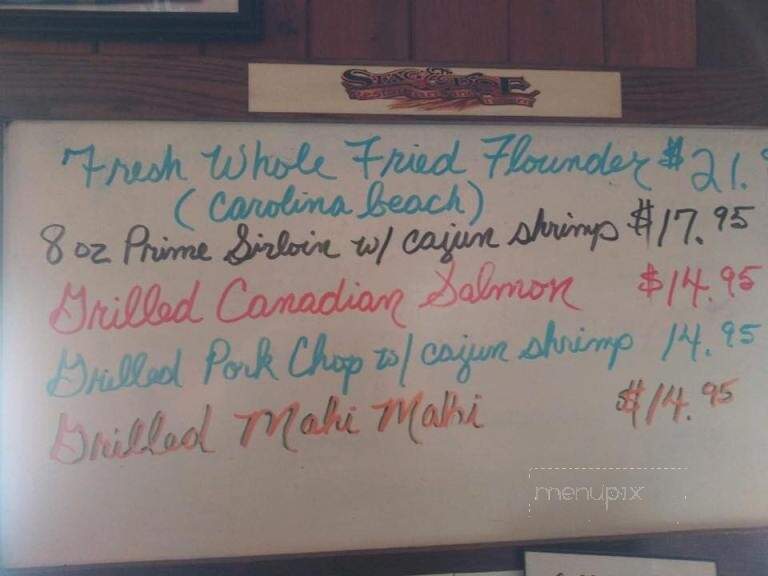 Fresh Whole Fried Flounder $21.9
(Carolina beach)
8 oz Prime Sirloin w/ cajun shrimp $17.95
Grilled Canadian Salmon $14.95
Grilled Pork Chop w/ cajun shrimp 14.95
Grilled Mahi Mahi $14.95
menupix